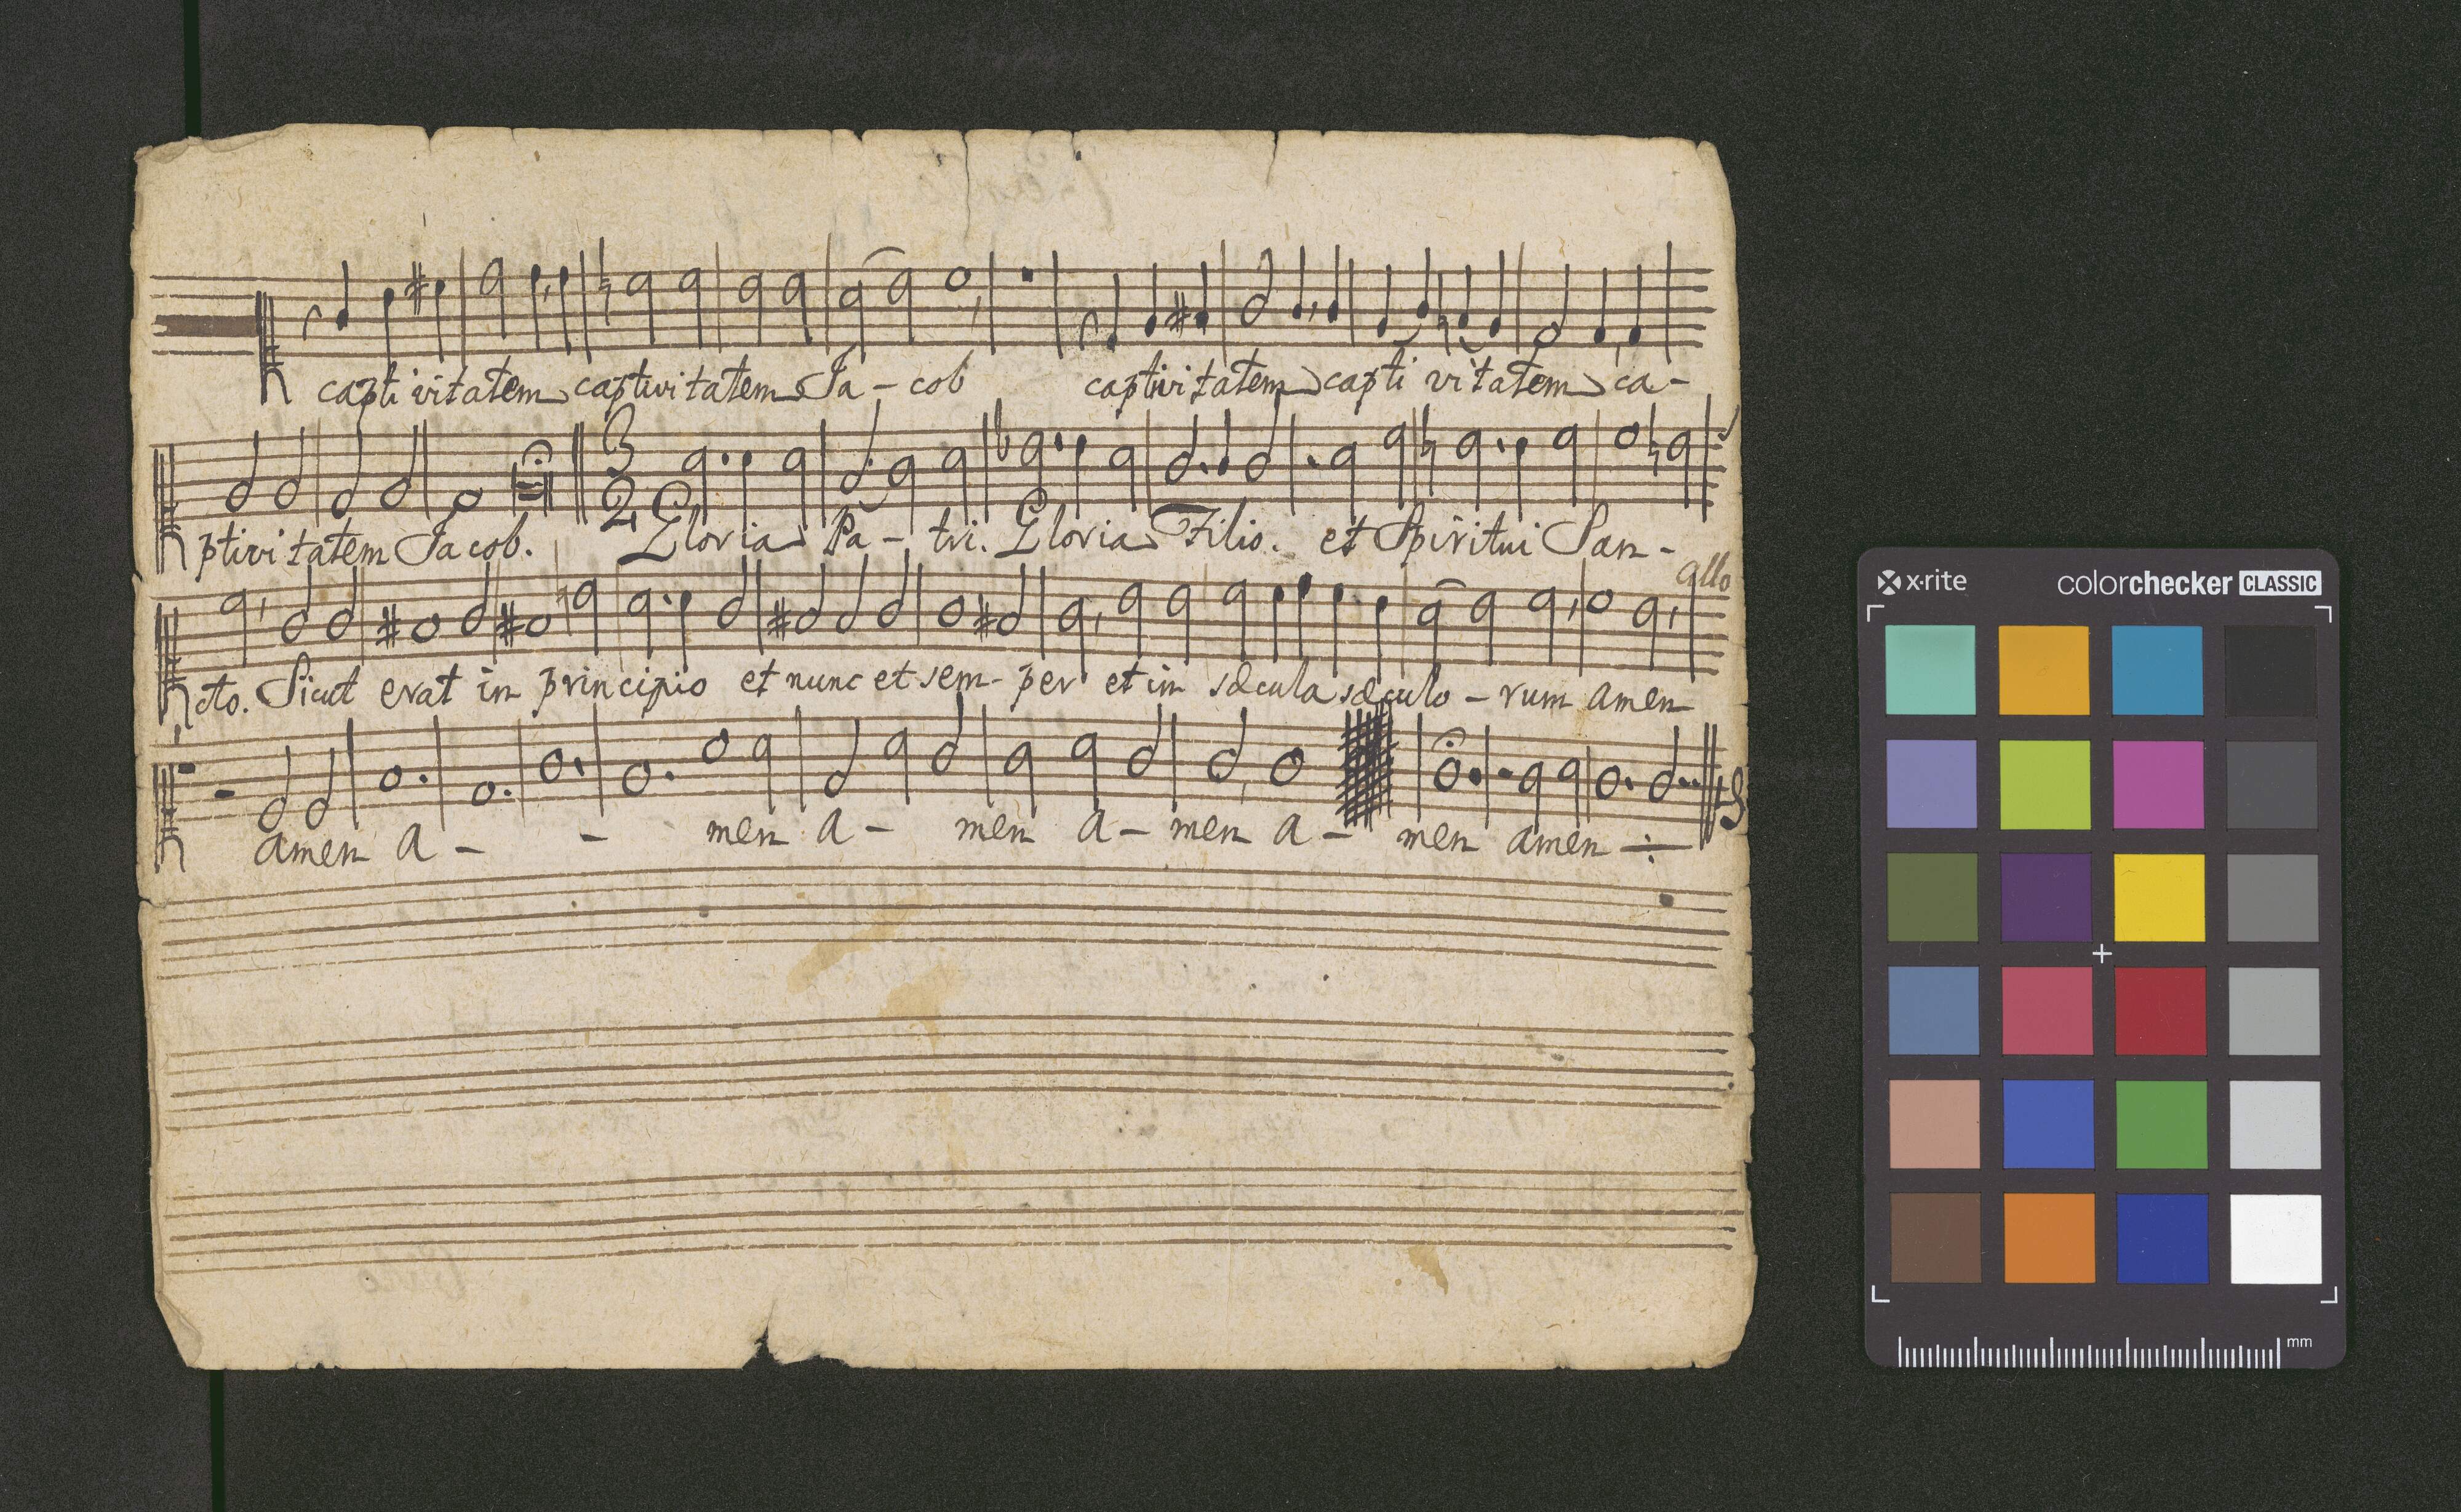 captivitatem captivitatem Ja - cob captivitatem capti vitatem ca -
ptivitatem Jacob. Gloria Pa - tri. Gloria Filio. et Spiritui San -
3
2
allo
cto. Sicut erat in principio et nunc et sem - per et in sæcula sæculo - rum amen
amen a - - men a - men a - men a - men amen
x·rite colorchecker CLASSIC
mm